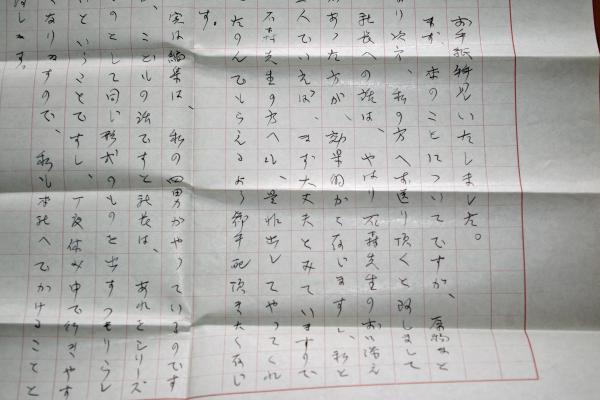 お手紙拝見いたしました。
まず本のことについてですが、原物など
り次第、私の方へお送り頂くと致しまして
社長への話は、やはり石森先生のお口添え
あった方が、効果的かと存じますし、私と
人でいえば、まず大丈夫とみていますので
石森先生の方へ、是非出してやってくれ
たのんでもらえるよう御手配頂きたく存じ
す。
実は編集は、私の四男がやっているのです
が、こどもの話ですと社長は、あれをシリーズ
のとして同じ形式のものを出すつもりらし
いということですし、丁度休み中で行きやす
くなりますので、私も本社へでかけることと
します。